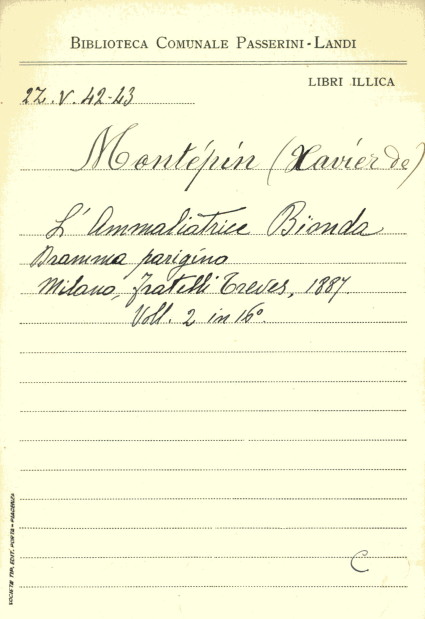 BIBLIOTECA COMUNALE PASSERINI-LANDI
LIBRI ILLICA
2Z.V.42-43
Montépin (Xavier de)
L'Ammaliatrice Bionda
Dramma parigino
Milano, Fratelli Treves, 1887.
Voll. 2 in 16º.
C
SOCIETÀ TIP. EDIT. PORTA - PIACENZA